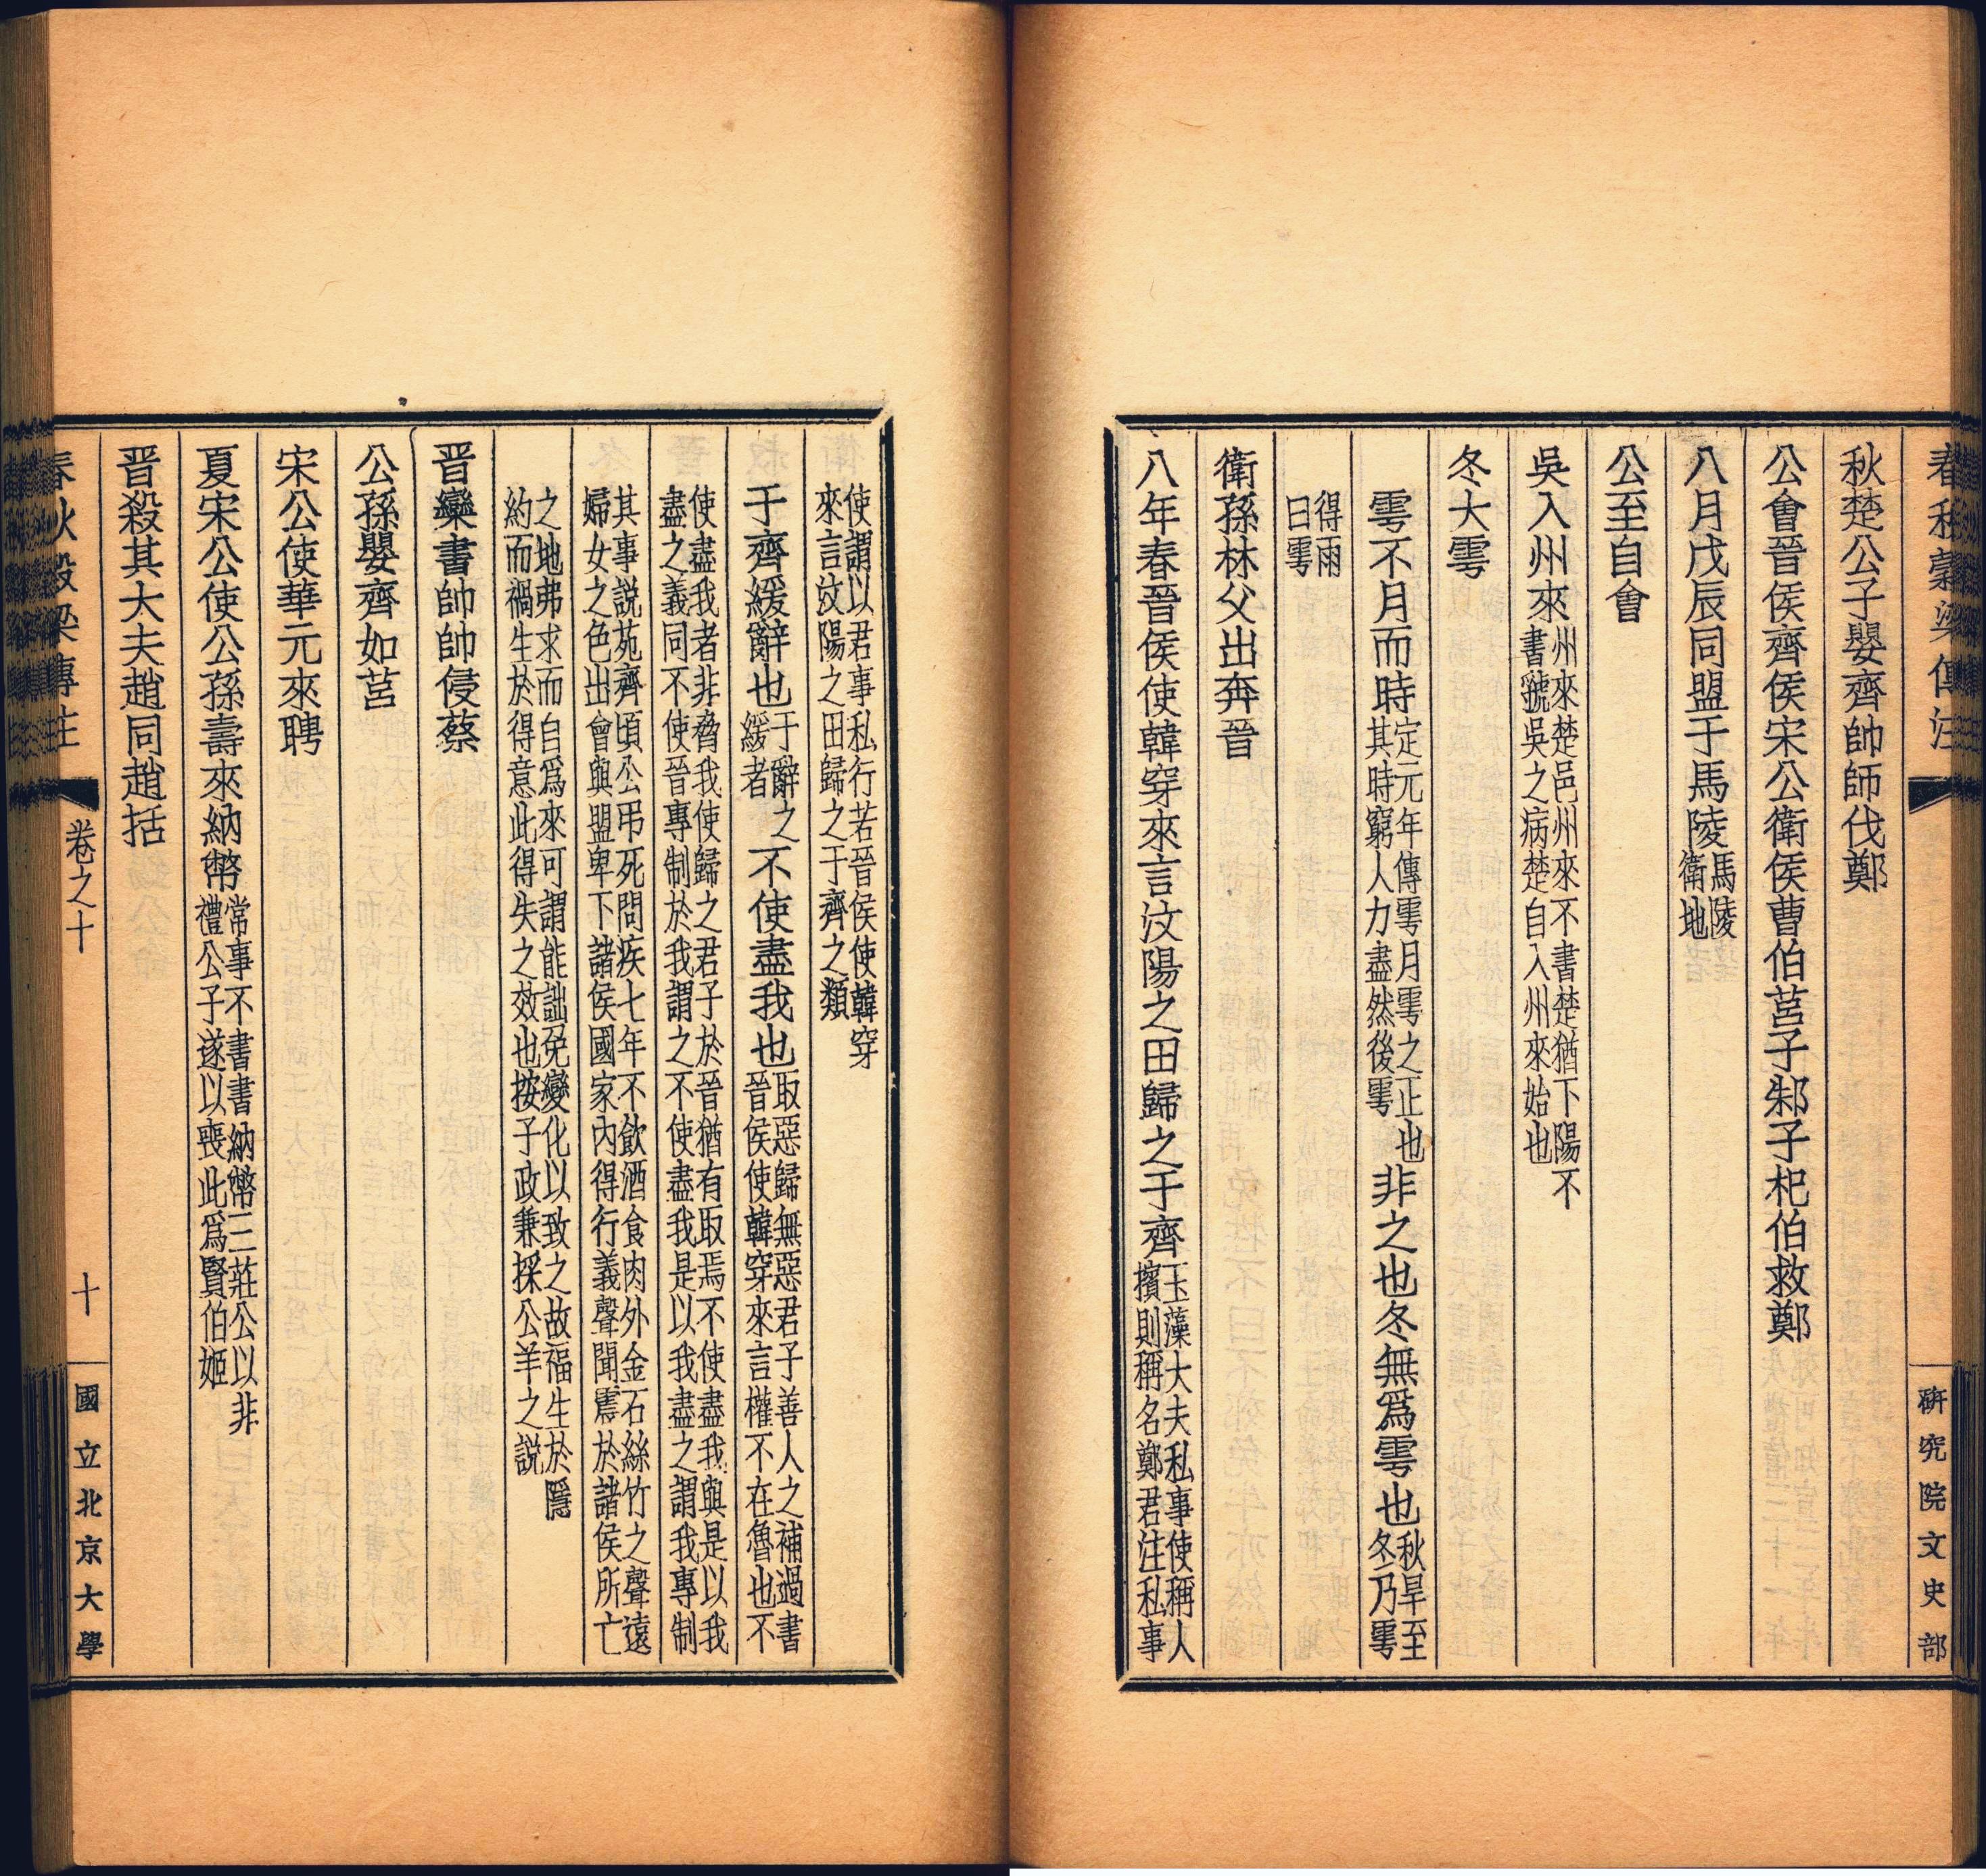 春秋穀梁傳注
研究院文史部
秋楚公子嬰齊帥師伐鄭
公會晉侯齊侯宋公衛侯曹伯莒子邾子杞伯救鄭
八月戊辰同盟于馬陵馬陵衛地
公至自會
吳入州來州來楚邑州來不書楚猶下陽不書虢吳之病楚自入州來始也
冬大雩
雩不月而時定元年傳雩月雩之正也其時窮人力盡然後雩非之也冬無爲雩也秋旱至冬乃雩
得雨曰雩
衛孫林父出奔晉
八年春晉侯使韓穿來言汶陽之田歸之于齊玉藻大夫私事使稱人擯則稱名鄭君注私事
使謂以君事私行若晉侯使韓穿來言汶陽之田歸之于齊之類
于齊緩辭也于辭之緩者不使盡我也取惡歸無惡君子善人之補過書晉侯使韓穿來言權不在魯也不
使盡我者非脅我使歸之君子於晉猶有取焉不使盡我與是以我盡之義同不使晉專制於我謂之不使盡我是以我盡之謂我專制
其事説苑齊頃公弔死問疾七年不飲酒食肉外金石絲竹之聲遠婦女之色出會與盟卑下諸侯國家內得行義聲聞震於諸侯所亡
之地弗求而自爲來可謂能詘免變化以致之故福生於隱約而禍生於得意此得失之效也按子政兼採公羊之説
晉欒書帥帥侵蔡
公孫嬰齊如莒
宋公使華元來聘
夏宋公使公孫壽來納幣常事不書書納幣三莊公以非禮公子遂以喪此爲賢伯姬
晉殺其大夫趙同趙括
春秋穀梁傳注
卷之十
十
國立北京大學